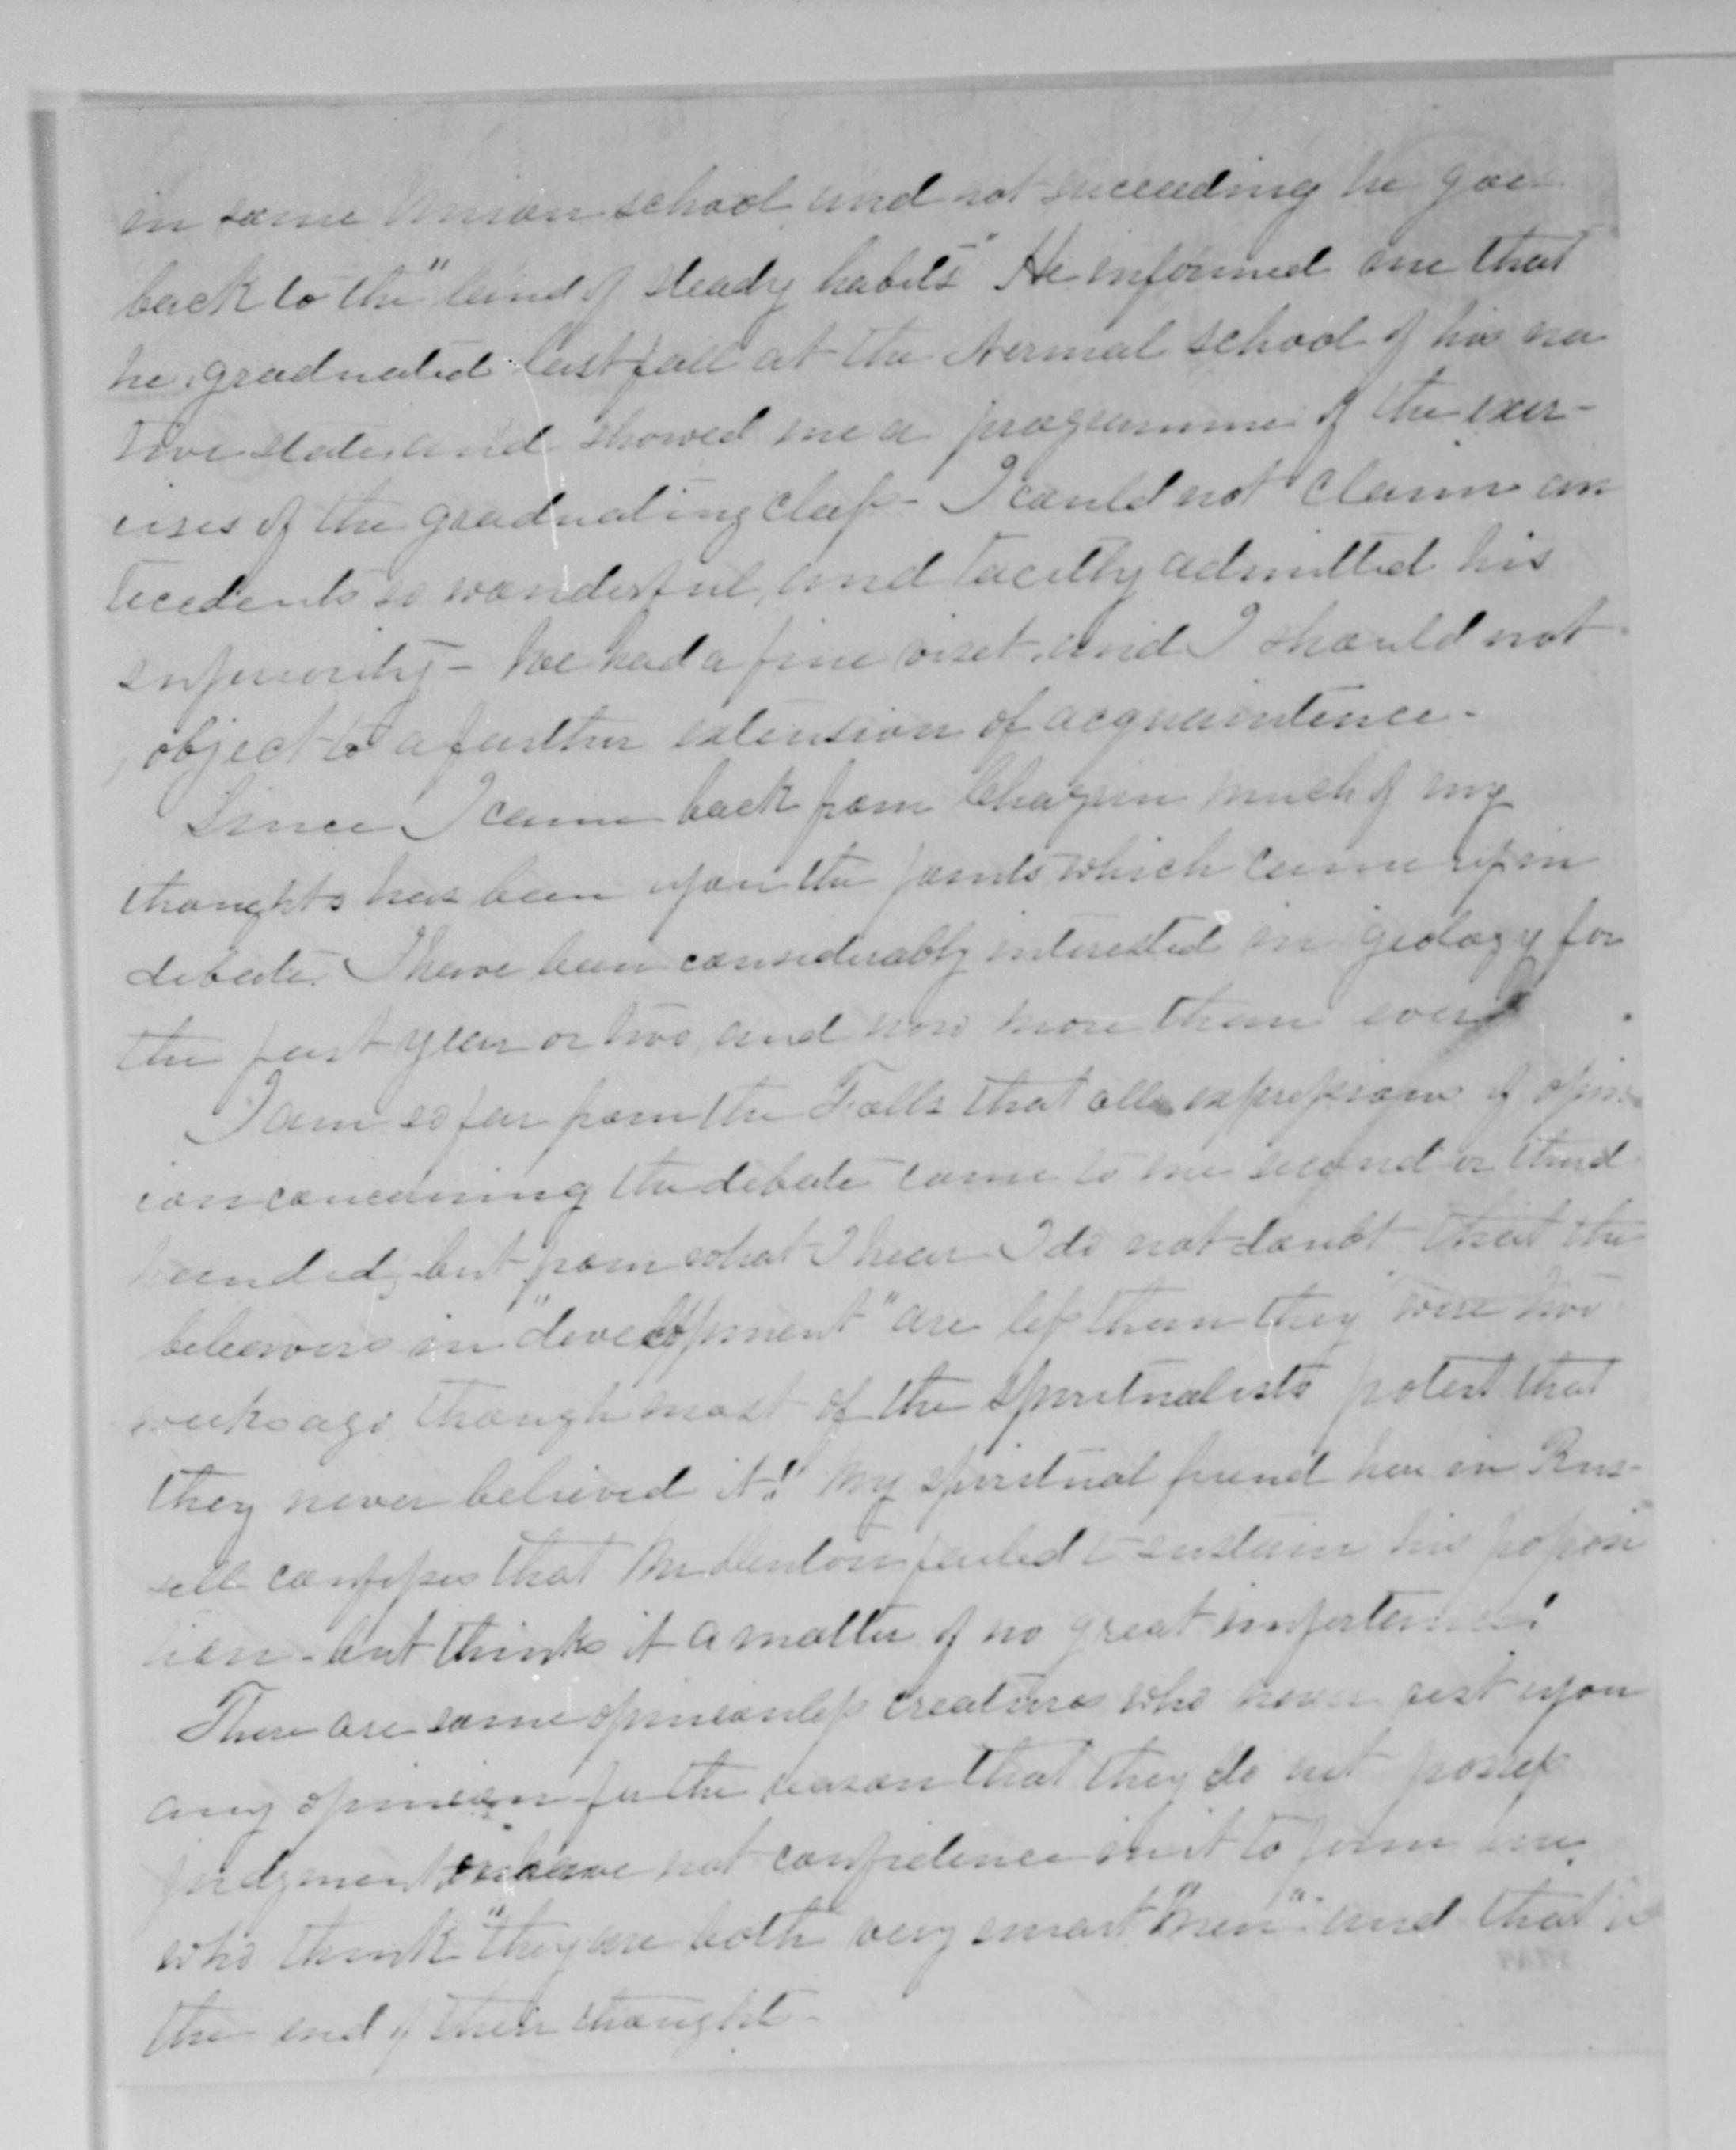 in some Union school, and not succeeding he goes
back to the "land of steady habits" He informed me that
he graduated last fall at the Normal School of his na
tive state, and showed me a programme of the exer-
cises of the graduating class - I could not claim an
tecedents so wonderful, and tacitly admitted his
superiority - We had a fine visit, and I should not
object to a further extension of acquaintence -
Since I came back from Chagrin much of my
thoughts has been upon the points which came up in
debate. I have been considerably interested in geology for
the past year or two, and now more than ever
I am so far from the Falls that all expressions of opin
ion concerning the debate come to me second or third
handed, but from what I hear I do not doubt that the
believers in "development" are less than they were two
weeks ago, though most of the Spiritualists protest that
they never believed it!! My spiritual friend here in Rus-
sell confesses that Mr Denton failed to sustain his proposi
tion - but thinks it a matter of no great importance!
There are some opinionless creatures who never rest upon
any opinion for the reason that they do not possess
judgment, or have not confidence in it to form one,
who think "they are both very smart men" and that is
the end of their thought -